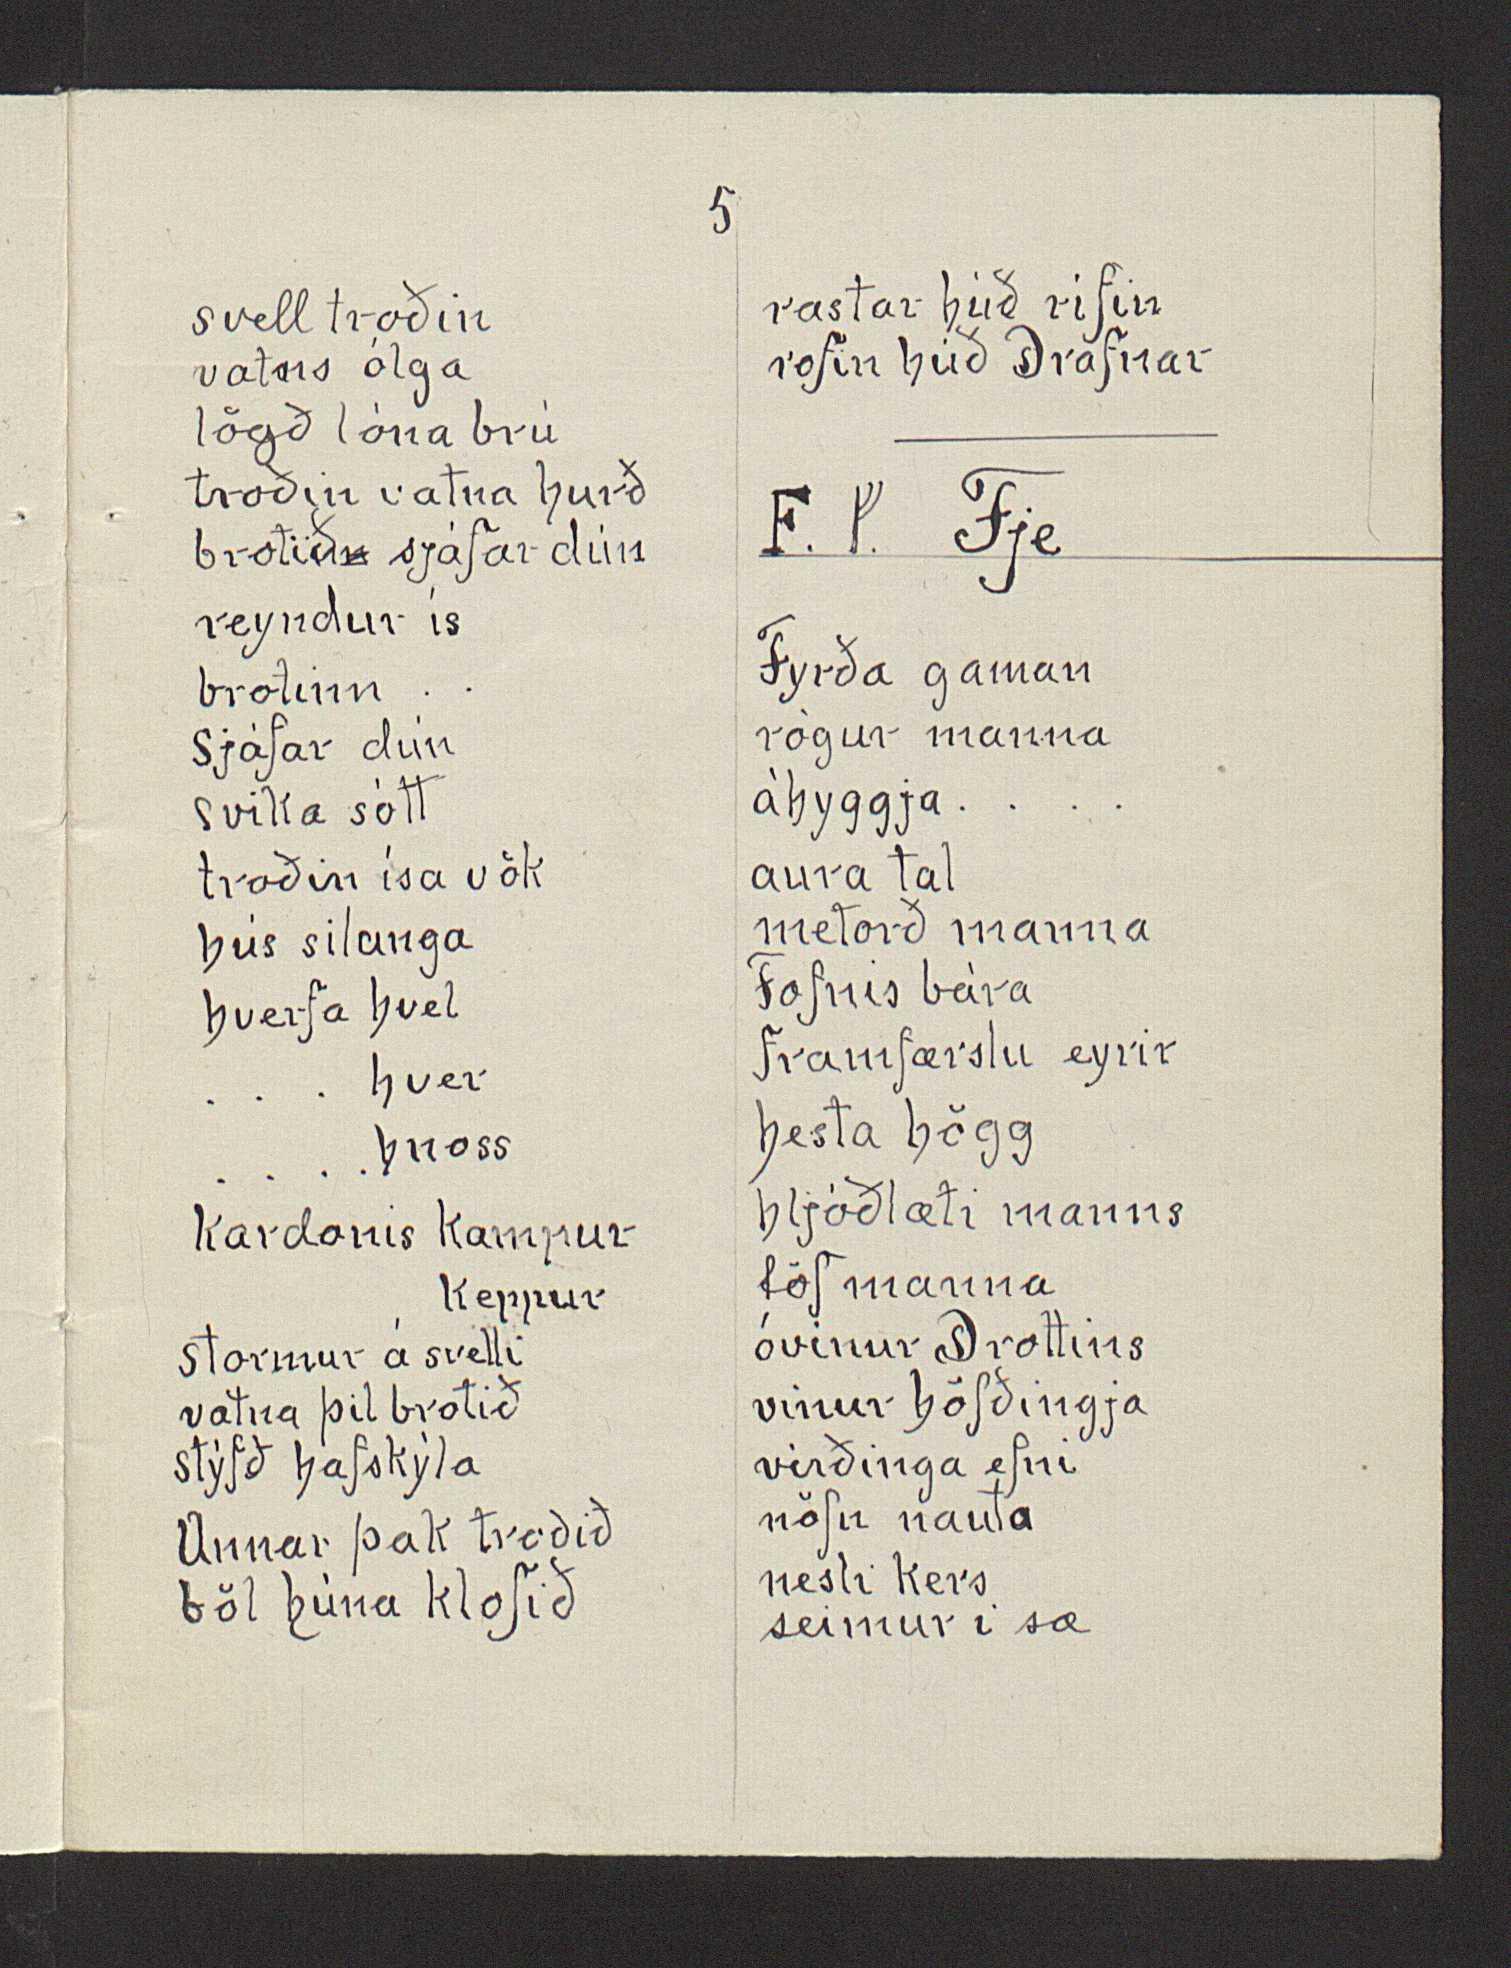 5
svell troðin
vatns ólga
lögð lóna brú
troðin vatna hurð
brotið sjáfar dún
reyndur ís
brotinn . .
Sjáfar dún
svika sótt
troðin ísa vök
hús silanga
hverfa hvel
. . . hver
. . . . hnoss
Kardonis Kampur
Keppur
stormur á svelli
vatna þil brotið
stýfð hafskýla
Unnar þak troðið
böl húna klofið
rastar húð rifin
rofin húð Drafnar
F. ᚠ. Fje
Fyrða gaman
rógur manna
áhyggja . . . .
aura tal
metorð manna
Fofnis bára
framfærslu eyrir
hesta högg
hljóðlæti manns
töf manna
óvinur Drottins
vinur höfðingja
virðinga efni
nöfn nauta
nesti kers
seimur i sæ